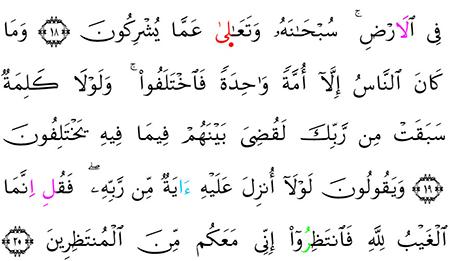 فِى اِ۬لَارْضِۖ سُبْحَٰنَهُۥ وَتَعَٰل۪ىٰ عَمَّا يُشْرِكُونَۖ ١٨ وَمَا
كَانَ اَ۬لنَّاسُ إِلَّآ أُمَّةٗ وَٰحِدَةٗ فَاخْتَلَفُواْۖ وَلَوْلَا كَلِمَةٞ
سَبَقَتْ مِن رَّبِّكَ لَقُضِىَ بَيْنَهُمْ فِيمَا فِيهِ يَخْتَلِفُونَ
١٩ وَيَقُولُونَ لَوْلَآ أُنزِلَ عَلَيْهِ ءَايَةٞ مِّن رَّبِّهِۦۖ فَقُلِ اِنَّمَا
اَ۬لْغَيْبُ لِلهِ فَانتَظِرُوٓاْ إِنِّى مَعَكُم مِّنَ اَ۬لْمُنتَظِرِينَۖ ٢٠